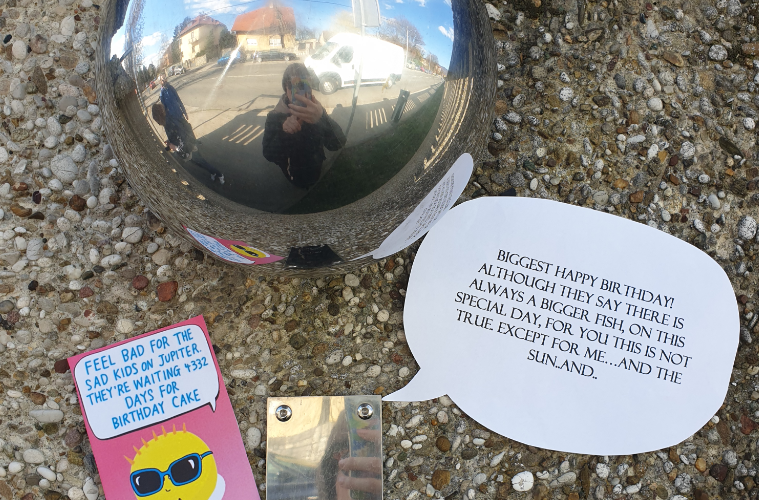 BIGGEST HAPPY BIRTHDAY!
ALTHOUGH THEY SAY THERE IS
ALWAYS A BIGGER FISH, ON THIS
SPECIAL DAY, FOR YOU THIS IS NOT
TRUE. EXCEPT FOR ME...AND THE
SUN..AND..
FEEL BAD FOR THE
SAD KIDS ON JUPITER.
THEY'RE WAITING 4332
DAYS FOR
BIRTHDAY CAKE